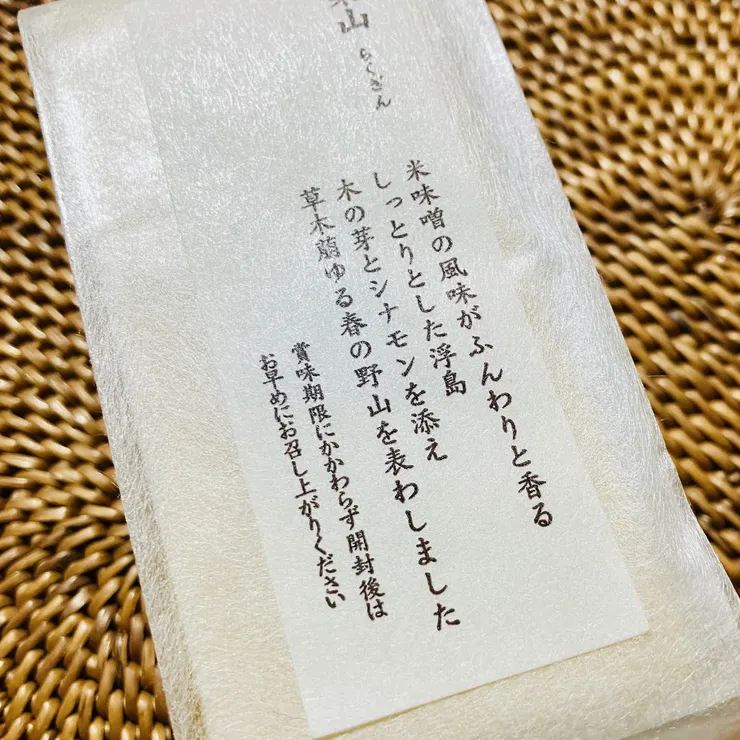 山
らくざん
米味噌の風味がふんわりと香る
しっとりとした浮島
木の芽とシナモンを添え
草木萠ゆる春の野山を表わしました
賞味期限にかかわらず開封後は
お早めにお召し上がりください